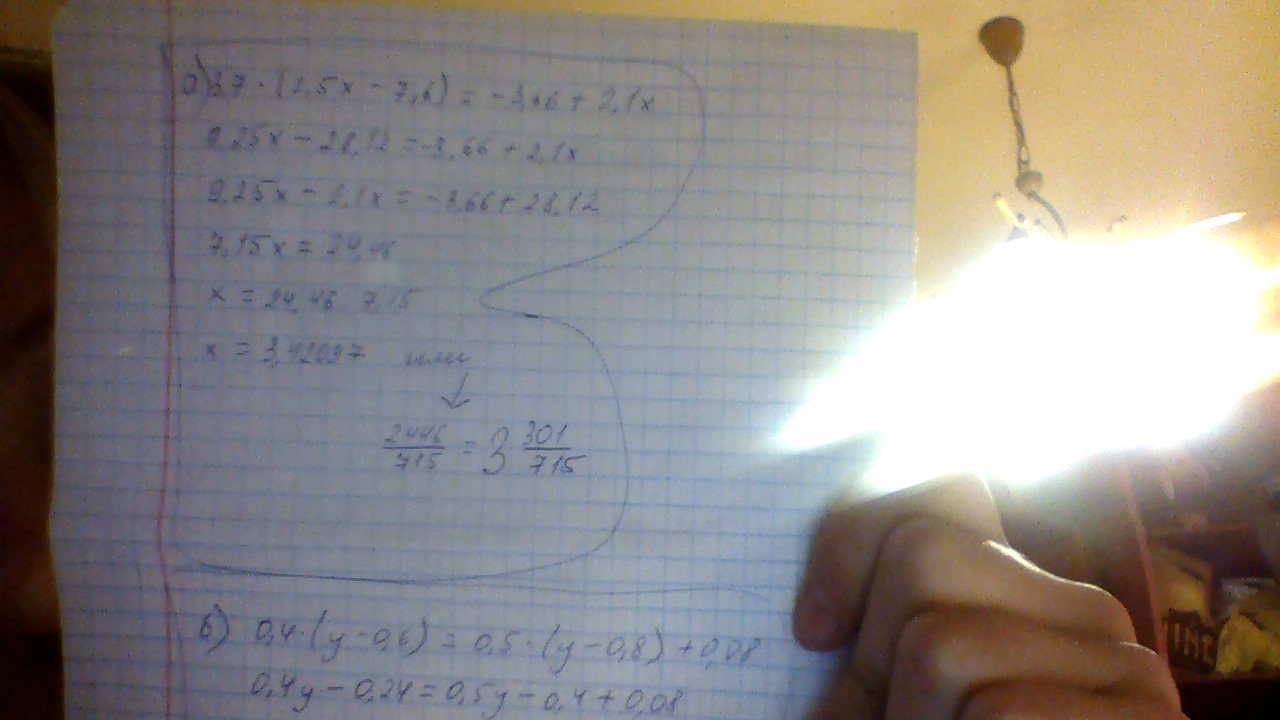 а) 3,7 · (2,5x - 7,6) = -3,66 + 2,1x
9,25x - 28,12 = -3,66 + 2,1x
9,25x - 2,1x = -3,66 + 28,12
7,15x = 24,46
x = 24,46 7,15
x = 3,42097 или
↓
2446/715 = 3 301/715
б) 0,4·(y-0,6) = 0,5·(y-0,8)+0,08
0,4y-0,24=0,5y-0,4+0,08